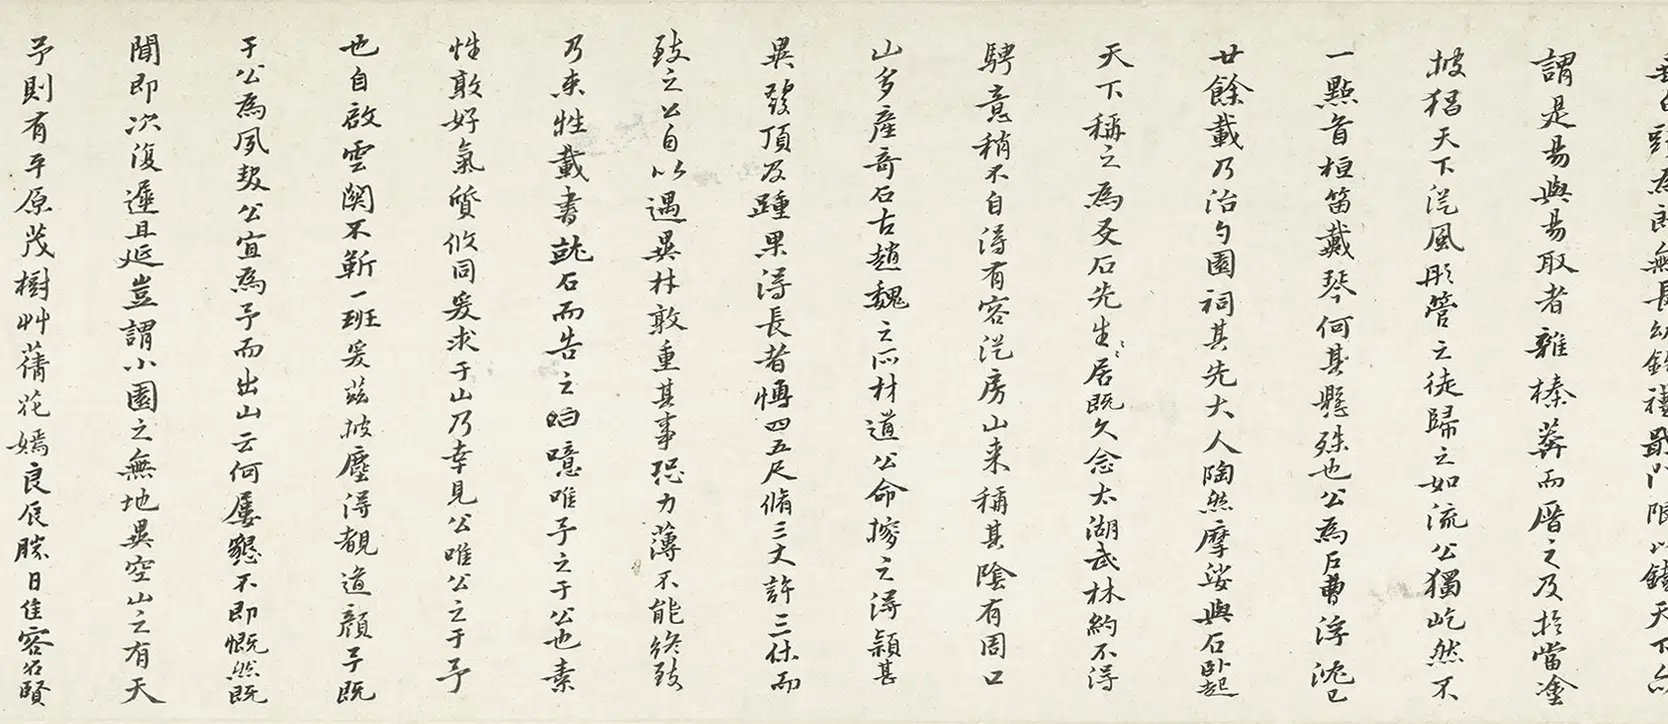 頭為郎無長幼
謂是易與易取者雜榛莽而厝之及於當塗
披猖天下從風彤管之徒歸之如流公獨屹然不
一點首桓笛戴琴何其懸殊也公為戶曹浮沈已
廿餘載乃治勺園祠其先大人陶然摩娑與石臥起
天下稱之為友石先生〻居既久念太湖武林約不得
騁意稍不自得有客從房山來稱其陰有周口
山多產奇石古趙魏之所材道公命搜之得穎甚
異發頂及踵果得長者博四五尺脩三丈許三休而
致之公自以遇異林敢重其事恐力薄不能終致
乃束牲載書就石而告之曰噫唯予之于公也素
性敢好氣質攸同爰求于山乃幸見公唯公之于予
也自啟雲關不靳一班爰茲披塵得覩道顏予既
于公為夙契公宜為予而出山云何屢懇不即慨然既
聞即次復遲且延豈謂小園之無地異空山之有天
予則有平原茂樹艸蒨花嫣良辰勝日佳客名賢